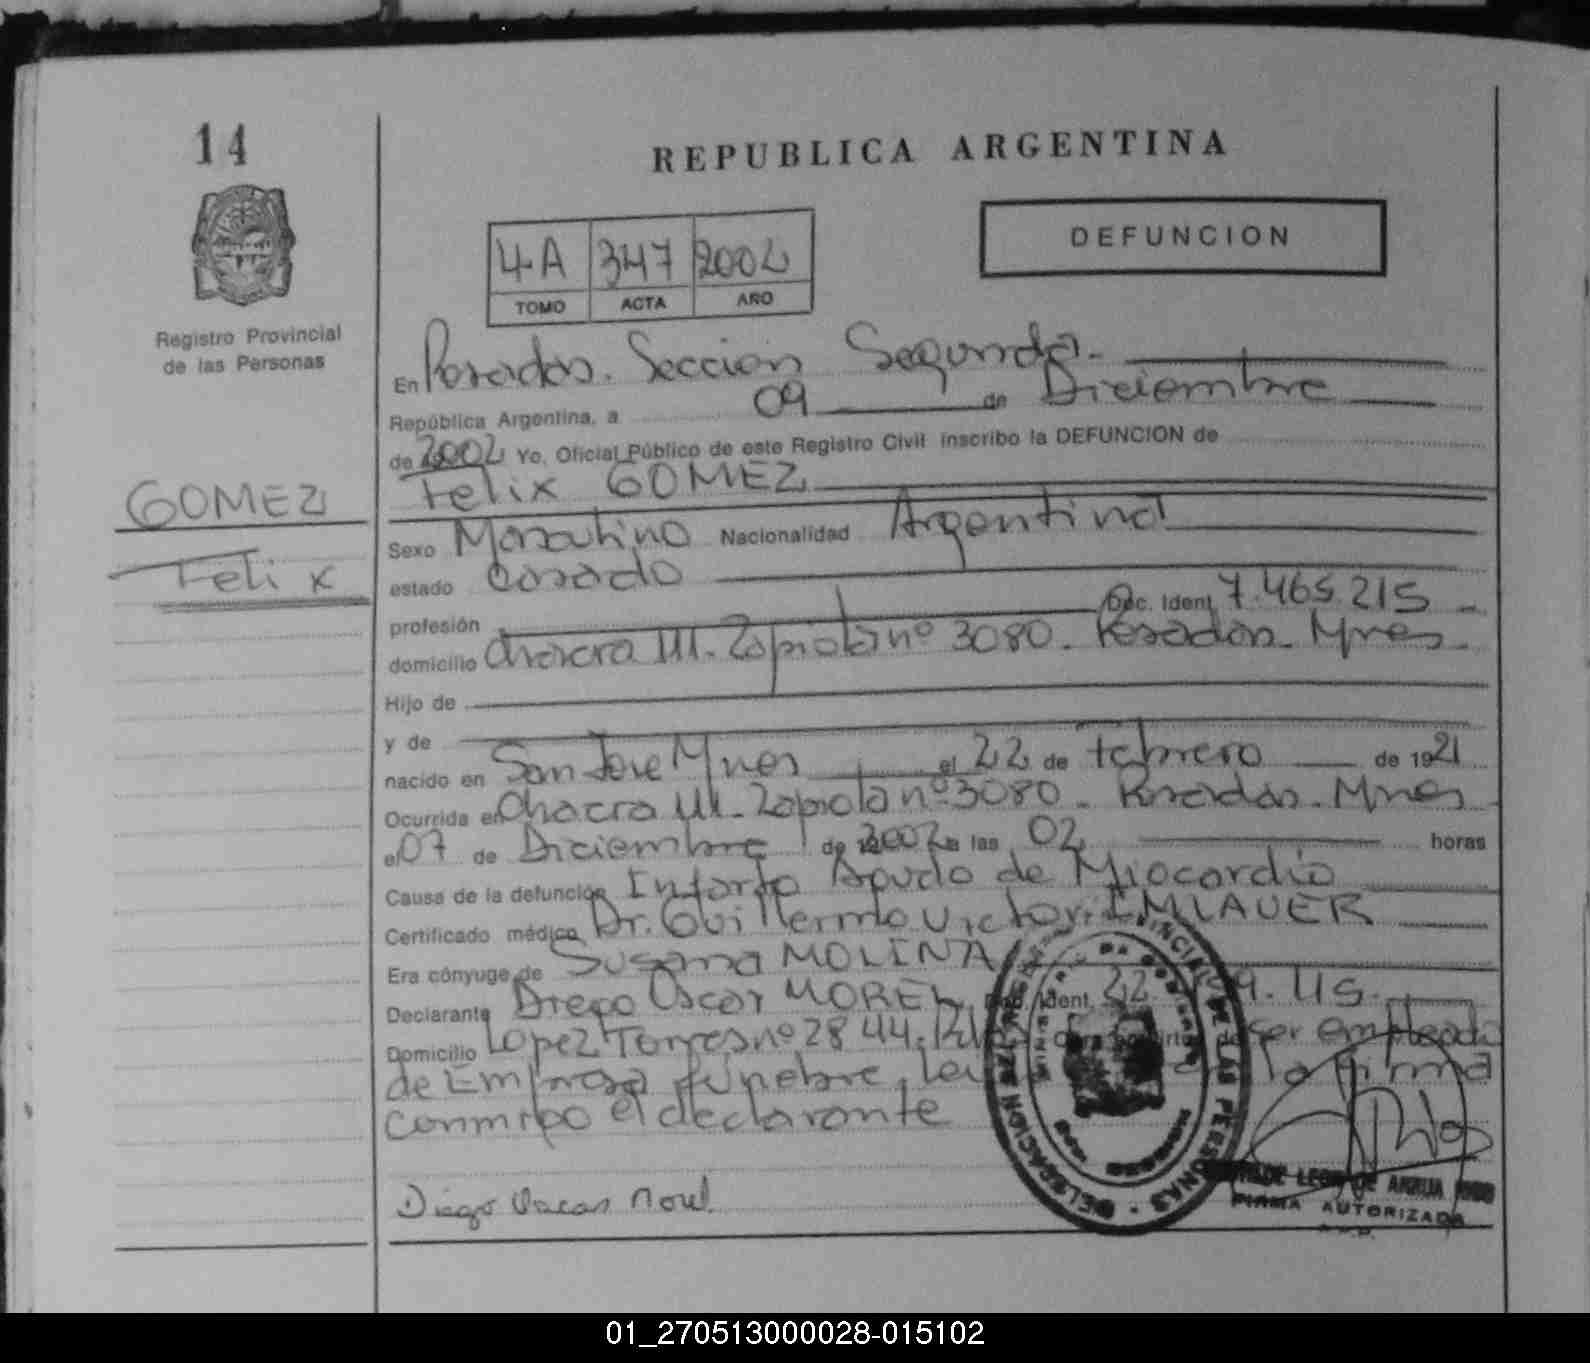 14
REPUBLICA ARGENTINA
DEFUNCION
4A 347 2002
TOMO ACTA AÑO
Registro Provincial
de las Personas
En Posadas. Sección Segunda.-
República Argentina, a 09 de Diciembre
de 2002 Yo, Oficial Público de este Registro Civil inscribo la DEFUNCION de
Felix GOMEZ
GOMEZ
Felix
Sexo Masculino Nacionalidad Argentina
estado Casado
profesión Doc. Ident. 7.465.215 -
domicilio Chacra 111. Zapiola nº 3080. Posadas. Mnes.
Hijo de
y de
nacido en San Jose Mnes el 22 de Febrero de 1921
Ocurrida en Chacra 111. Zapiola nº 3080. Posadas. Mnes
el 07 de Diciembre de 2002 a las 02 horas
Causa de la defunción Infarto Agudo de Miocardio
Certificado médico Dr. Guillermo Victor
Era cónyuge de Susana MOLINA
Declarante Diego Oscar MOREL Doc. Ident. 22.
Domicilio Lopez Torres nº 2844. ser empleado
de Empresa funebre, la firma
conmigo el declarante
Diego Oscar Morel
DE LAS PERSONAS
FIRMA AUTORIZADA
01_270513000028-015102